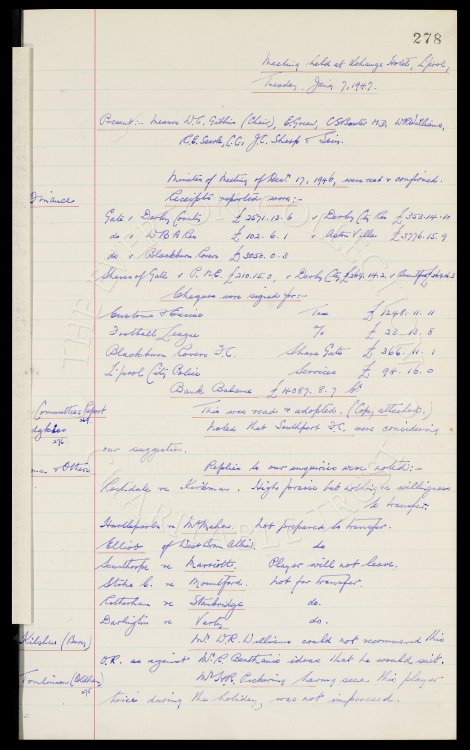 278
Meeting held at Exchange Hotel, L'pool,
Tuesday. Jan'y 7, 1947.
Present:- Messrs W.C. Gibbins (Chair), E. Green, C.S. Baxter M.D., W.R. Williams,
R.E. Searle, C.C., J.C. Sharp & Secy.
Minutes of Meeting of Dec'r 17, 1946, were read & confirmed.
Finance
Receipts reported were:-
Gate v Derby County £ 2571. 13. 6 v Derby Cty Res £ 353. 14. 10
do v W B A Res £ 102. 6. 1 v Aston Villa £ 3776. 15. 9
do v Blackburn Rovers £ 3053. 0. 3
Shares of Gate v P.N.E. £ 210. 15. 0, v Derby Cty £
Cheques were signed for:-
Customs & Excise Tax £ 1248. 11. 11
Football League % £ 23. 13. 8
Blackburn Rovers F.C. Share Gate £ 366. 11. 1
L'pool City Police Services £ 94. 16. 0
Bank Balance £ 4087. 8. 7 Cr
Committees Report
This was read & adopted. (Copy attached.)
Noted that Southport F.C. were considering
our suggestion.
& Others
Replies to our enquiries were noted:-
Rochdale re Kirkman. High praise but nothing re willingness
to transfer.
Hartlepools re McMahon. Not prepared to transfer.
Elliott of West Brom Albion. do
Scunthorpe re Marriott. Player will not leave.
Stoke C. re Mountford. Not for transfer.
Rotherham re Stanbridge do.
Darlington re Varty do.
Kilshaw (Bury)
Mr. W.R. Williams could not recommend this
O.R. as against Mr. R. Bentham's ideas that he would suit.
Tomlinson (Oldham)
Mr. H.R. Pickering having seen this player
twice during the holiday, was not impressed.